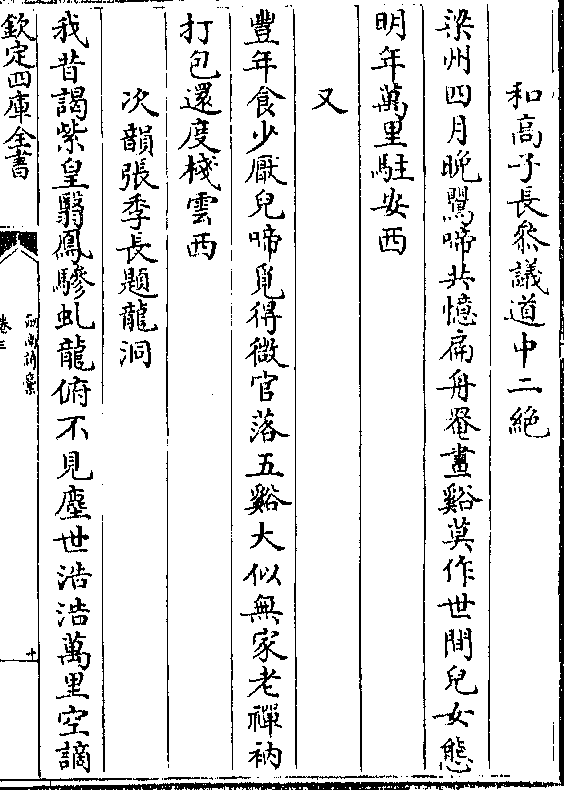 和高子長參議道中二絶
梁州四月晚鶯啼共憶扁舟罨畫谿莫作世間兒女態
明年萬里駐安西
又
豐年食少厭兒啼覓得微官落五谿大似無家老禪衲
打包還度棧雲西
次韻張季長題龍洞
我昔謁紫皇翳鳳驂虬龍俯不見塵世浩浩萬里空謫
欽定四庫全書
劍南詩藁
卷三
十